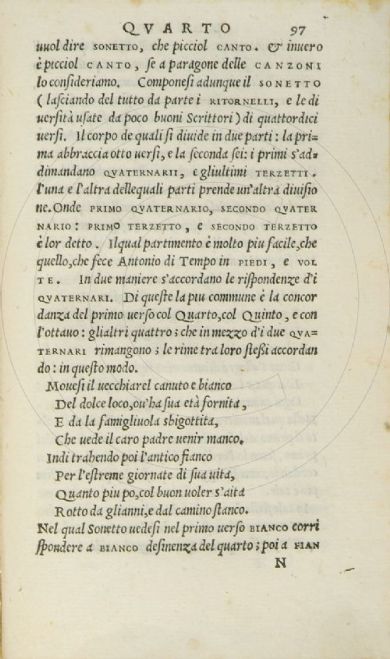 QVARTO 97
uuol dire SONETTO, che picciol CANTO. & in uero
è picciol CANTO, se a paragone delle CANZONI
lo consideriamo. Componesi adunque il SONETTO
(lasciando del tutto da parte i RITORNELLI, e le di
uersità usate da poco buoni Scrittori) di quattordici
uersi. Il corpo de quali si diuide in due parti: la pri=
ma abbraccia otto uersi, e la seconda sei: i primi s'ad=
dimandano QVATERNARII, e gliultimi TERZETTI.
l'una e l'altra dellequali parti prende un'altra diuisio
ne. Onde PRIMO QVATERNARIO, SECONDO QVATER
NARIO: PRIMO TERZETTO, e SECONDO TERZETTO
è lor detto. Ilqual partimento è molto piu facile, che
quello, che fece Antonio di Tempo in PIEDI, e VOL
TE. In due maniere s'accordano le rispondenze d'i
QVATERNARI. Di queste la piu commune è la concor
danza del primo uerso col Quarto, col Quinto, e con
l'ottauo: glialtri quattro; che in mezzo d'i due QVA=
TERNARI rimangono; le rime tra loro stessi accordan
do: in questo modo.
Mouesi il uecchiarel canuto e bianco
Del dolce loco, ou'ha sua età fornita,
E da la famigliuola sbigottita,
Che uede il caro padre uenir manco.
Indi trahendo poi l'antico fianco
Per l'estreme giornate di sua uita,
Quanto piu po, col buon uoler s'aita
Rotto da glianni, e dal camino stanco.
Nel qual Sonetto uedesi nel primo uerso BIANCO corri
spondere a BIANCO desinenza del quarto; poi a FIAN
N